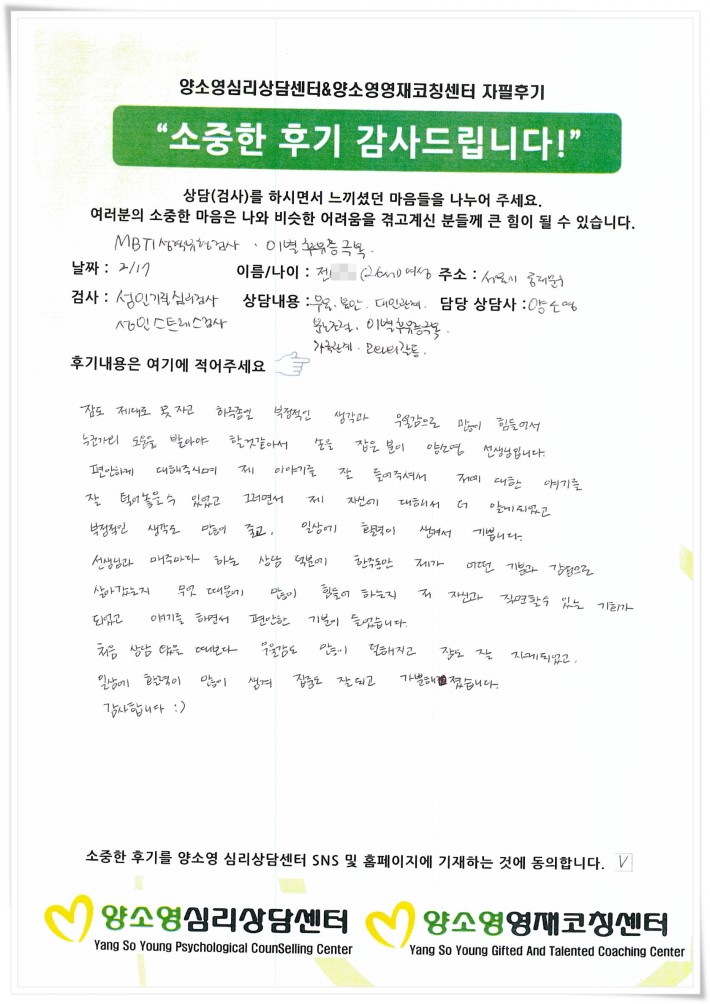 양소영심리상담센터&양소영영재코칭센터 자필후기
“소중한 후기 감사드립니다!”
상담(검사)를 하시면서 느끼셨던 마음들을 나누어 주세요.
여러분의 소중한 마음은 나와 비슷한 어려움을 겪고계신 분들께 큰 힘이 될 수 있습니다.
MBTI 성격유형검사 · 이별후유증극복.
날짜 : 2/17 이름/나이 : 전 (26세) 여성 주소 : 서울시 동대문구
검사 : 성인기질심리검사 상담내용 : 우울. 불안. 대인관계. 담당 상담사 : 양소영
성인스트레스검사 분노조절. 이별후유증극복.
가족관계.
후기내용은 여기에 적어주세요
잠도 제대로 못 자고 하루종일 부정적인 생각과 우울감으로 많이 힘들어서
누군가의 도움을 받아야 할것같아서 손을 잡은 분이 양소영 선생님입니다.
편안하게 대해주시며 제 이야기를 잘 들어주셔서 저에 대한 얘기를
잘 털어놓을수 있었고 그러면서 제 자신에 대해서 더 알게되었고
부정적인 생각도 많이 줄고, 일상에 활력이 생겨서 기쁩니다.
선생님과 매주마다 하는 상담 덕분에 한주동안 제가 어떤 기분과 감정으로
살아갔는지 무엇 때문에 많이 힘들어 하는지 저 자신과 직면할수 있는 기회가
되었고 얘기를 하면서 편안한 기분이 들었습니다.
처음 상담 왔을 때보다 우울감도 많이 덜해지고 잠도 잘 자게되었고,
일상에 활력이 많이 생겨 집중도 잘되고 가뿐해졌습니다.
감사합니다 :)
소중한 후기를 양소영 심리상담센터 SNS 및 홈페이지에 기재하는 것에 동의합니다. V
양소영심리상담센터 양소영영재코칭센터
Yang So Young Psychological CounSelling Center Yang So Young Gifted And Talented Coaching Center